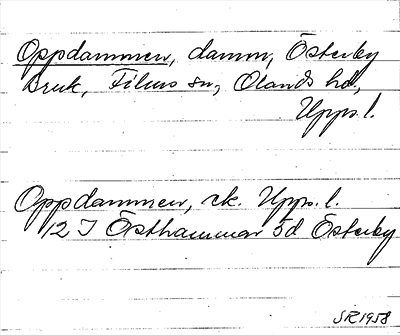 Oppdammen, damm, Österby
Bruk, Films sn, Olands hd,
Upps. l.
Oppdammen, rk. Upps. l.
12 I Östhammar 5d Österby
SR 1958